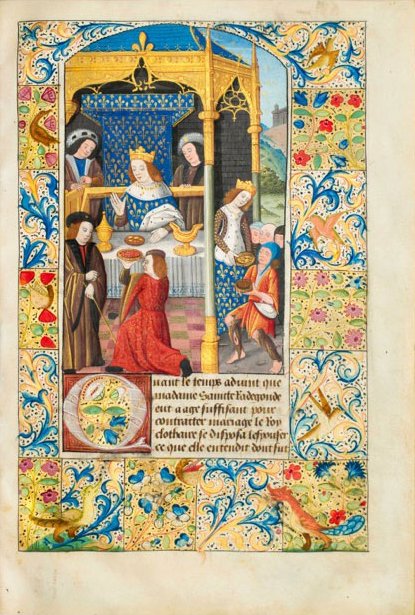 Quant le temps aduint que
madame Saincte Radegonde
eut aage suffisant pour
contracter mariage le Roy
clothaire se disposa lespouser
ce que elle entendit dont fut